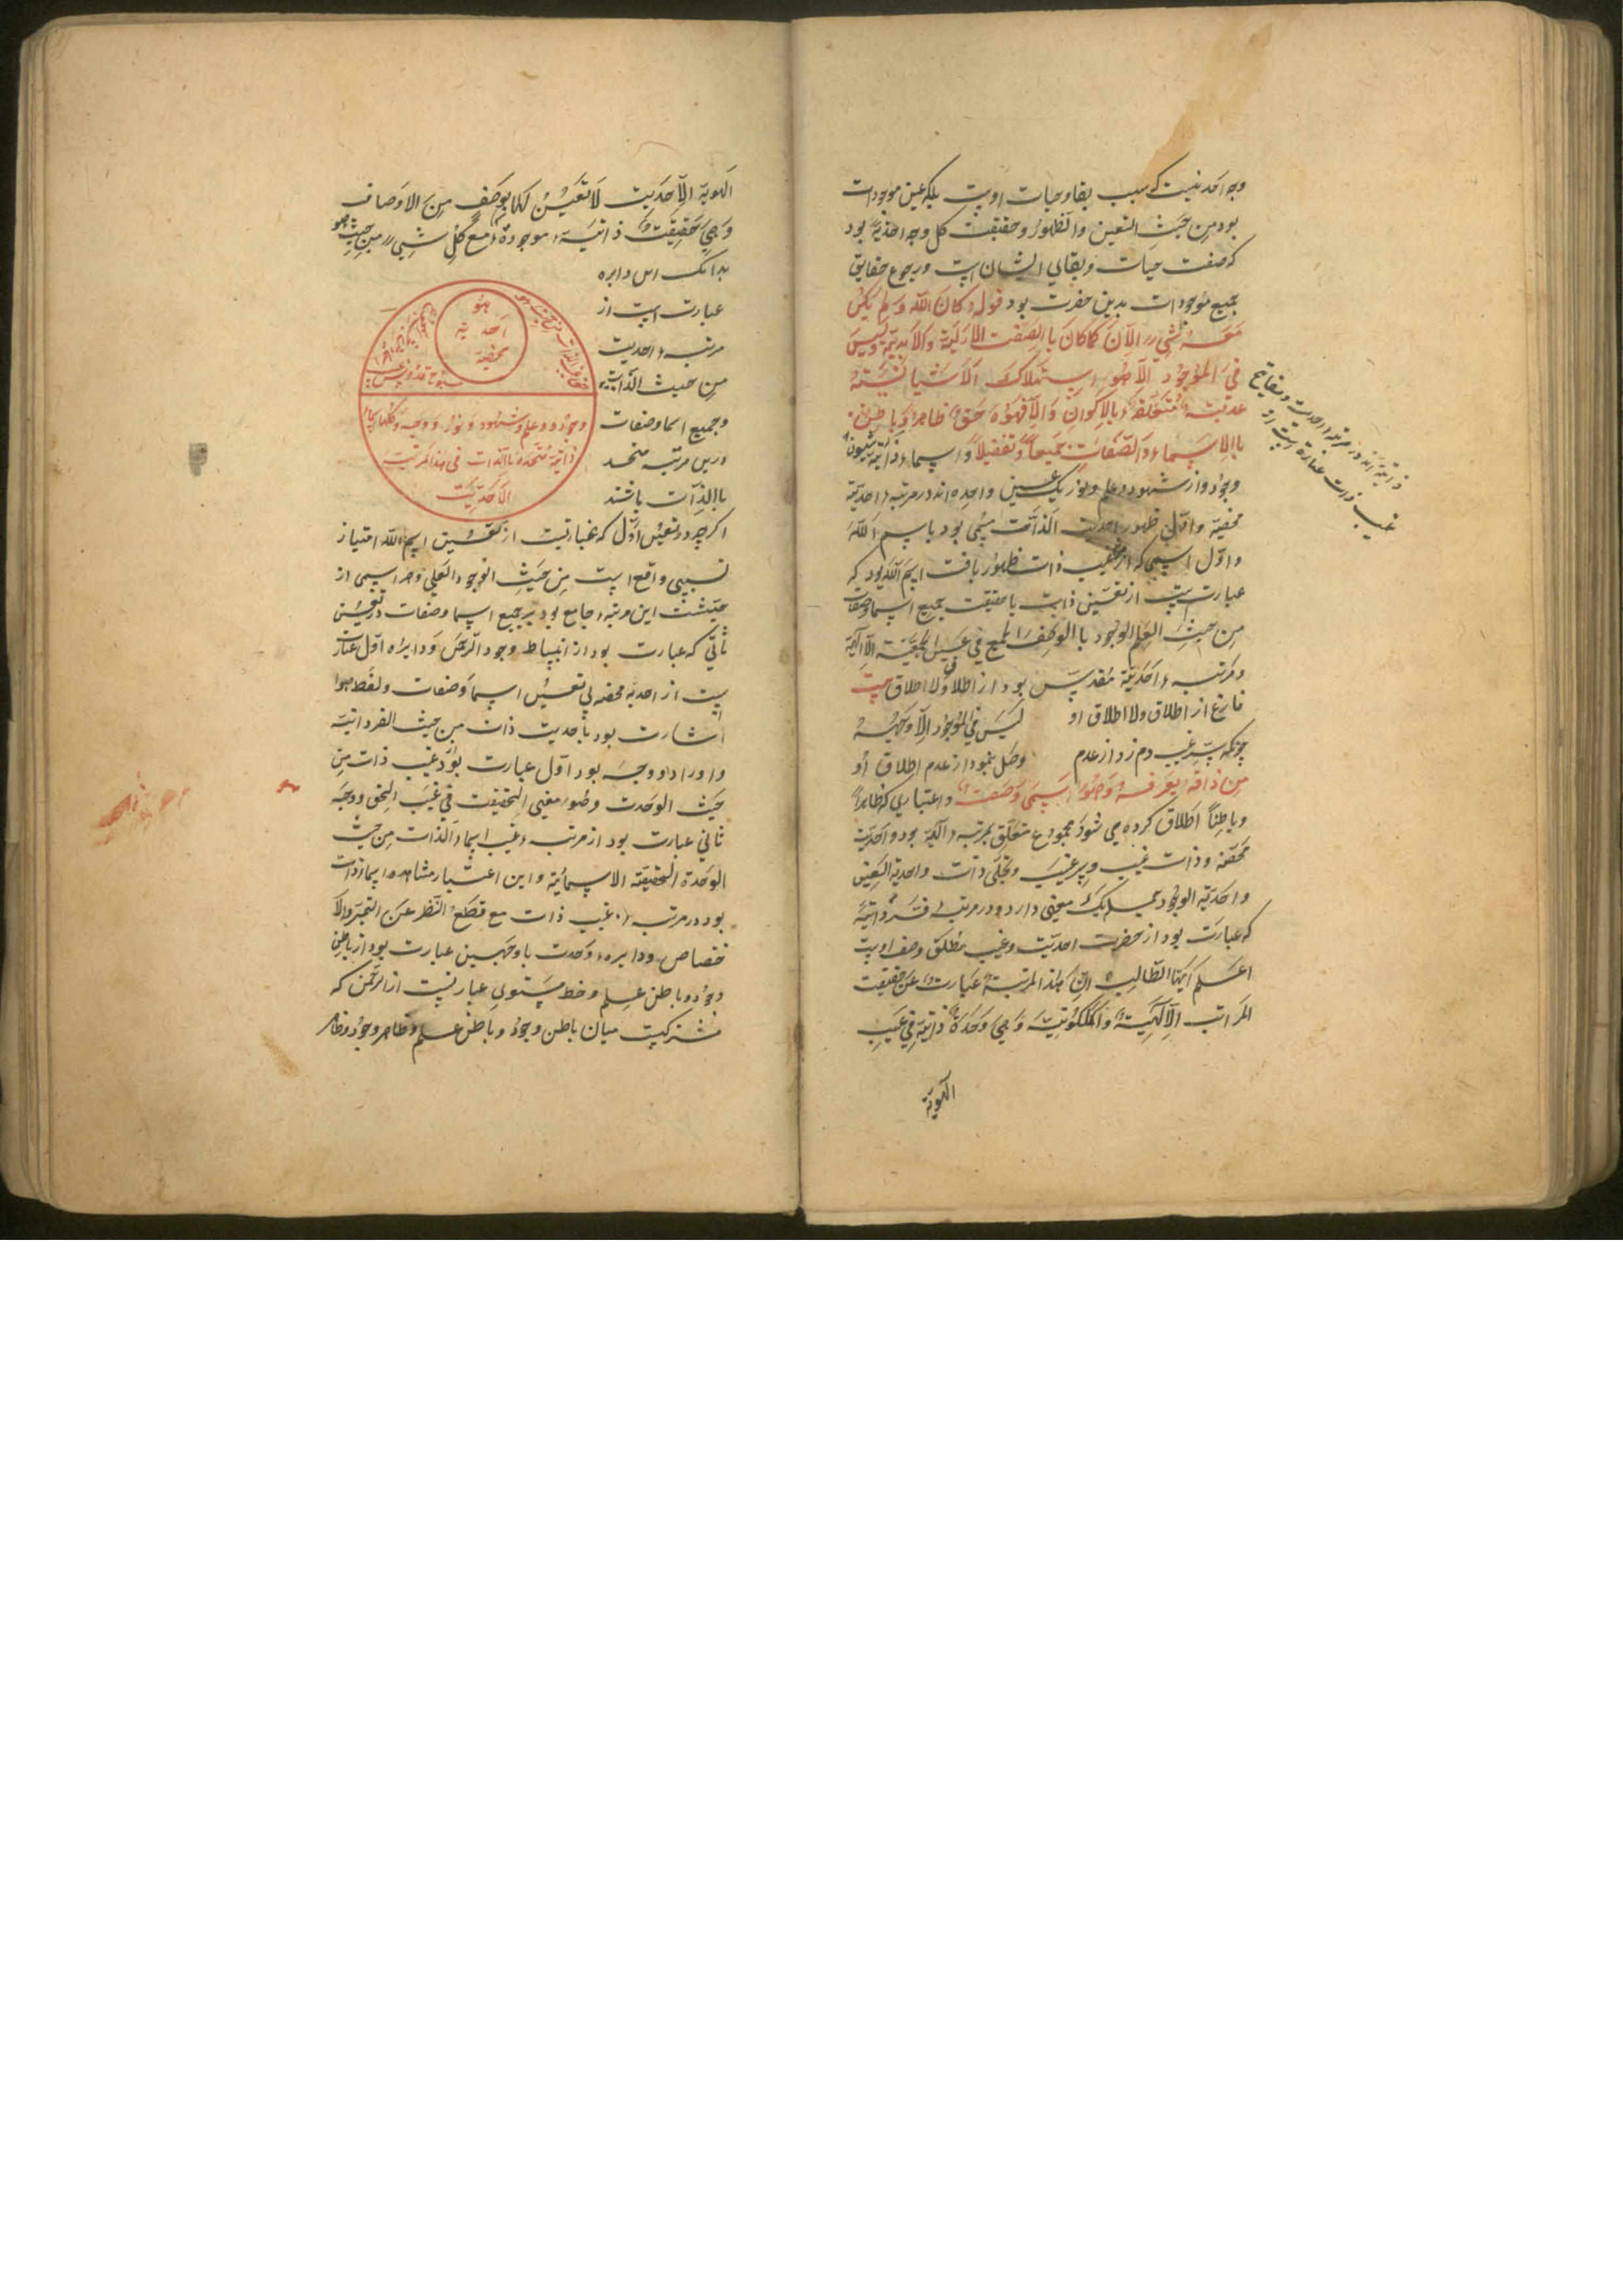 وجه احدیتیست که سبب بقا و حیات اوست بلکه عین موجودات
بود من حیث التعین والظهور و حقیقت کل وجه احدیة بود
که صفت حیات و بقای ایشان است و رجوع حقایق
جمیع موجودات بدین حضرت بود قوله کان الله ولم یکن
معه شیء الآن کما کان باالصفت الازلیة والابدیة ولیس
فی الموجود الا هو استهلاک الاشیا نسبته
عدمیته متعلقة بالاکوان والا فهو حق ظاهر و باطن
باالاسماء والصفات جمیعاً و تفصیلاً و اسماء ذاتیه
وجود و نور شهود و علم و نور یک عین واحده اند در مرتبه احدیة
محضیة و اول ظهور احدیت الذات مسمی بود باسم الله
و اول اسمی که از غیب ذات ظهور یافت اسم الله بود که
عبارتست از تعین ذات با حقیقت جمیع اسما و صفات
من حیث العلم الوجود
و مرتبه احدیة مقدس بود از اطلاق و لا اطلاق بیت
فارغ از اطلاق و لا اطلاق او لیس فی الموجود الا وجهه
چونکه سر غیب دم زد از عدم وصل نمود از عدم اطلاق او
من ذاقه یعرفه و هو اسمی وصفت و اعتباری که ظاهراً
و باطناً اطلاق کرده می شود مجموع متعلق بمرتبه الهیة بود و احدیة
محضه و ذات غیب و سر غیب و تجلی ذات و احدیة العین
و احدیة الوجود جمله یک معنی دارد و در مرتبه
که عبارت بود از حضرت احدیت و غیب مطلق وصف اوست
اعلم ایها الطالب ان هذا المرتبة عبارت عن حقیقت
المراتب الالهیة والملکوتیة و هی وحدة ذاتیة فی غیب
الهویة
ذاتیة اند در مرتبه احدیت و مفاتیح
غیب ذات عبارت است از
الهویة الاحدیت لا تعین لها بوصف من الاوصاف
و هی حقیقت ذاتیة موجودة مع کل شیء من حیث هو
بدانک این دایره
عبارت است از
مرتبه احدیت
من حیث الذات
و جمیع اسما و صفات
درین مرتبه متحد
باالذات باشند
هو
احدیة
محضة
سبوح قدوس
وجود و علم و شهود و نور و وجه و کلها اسماء
ذاتیة متحدة باالذات فی هذا المرتبة
الاحدیت
اکرچه در تعین اول که عبارتیست از تعین اسم الله امتیاز
نسبی واقع است من حیث الوجود العلمی و هر اسمی از
حیثیت این مرتبه جامع بود بر جمیع اسما و صفات در تعین
ثانی که عبارت بود از انبساط وجود الرحمن و دایره اول عبارت
یست از احدیة محضه بی تعین اسما و صفات و لفظ هو
اشارت بود باحدیت ذات من حیث الفردانیة
و او را دو وجه بود اول عبارت بود غیب ذات من
حیث الوحدت و هو معنی الحقیقت فی غیب الحق و وجه
ثانی عبارت بود از مرتبه غیب اسماء الذات من حیث
الوحدة الحقیقته الاسمائیة و این اعتبار مشاهده اسما ذات
بود در مرتبه غیب ذات مع قطع النظر عن التمیز والا
ختصاص و دایره وحدت با وجهین عبارت بود از باطن
وجود و باطن علم و خط مستوی عبارتیست از الرحمن که
مشترکیست میان باطن وجود و باطن علم و ظاهر وجود و ظاهر